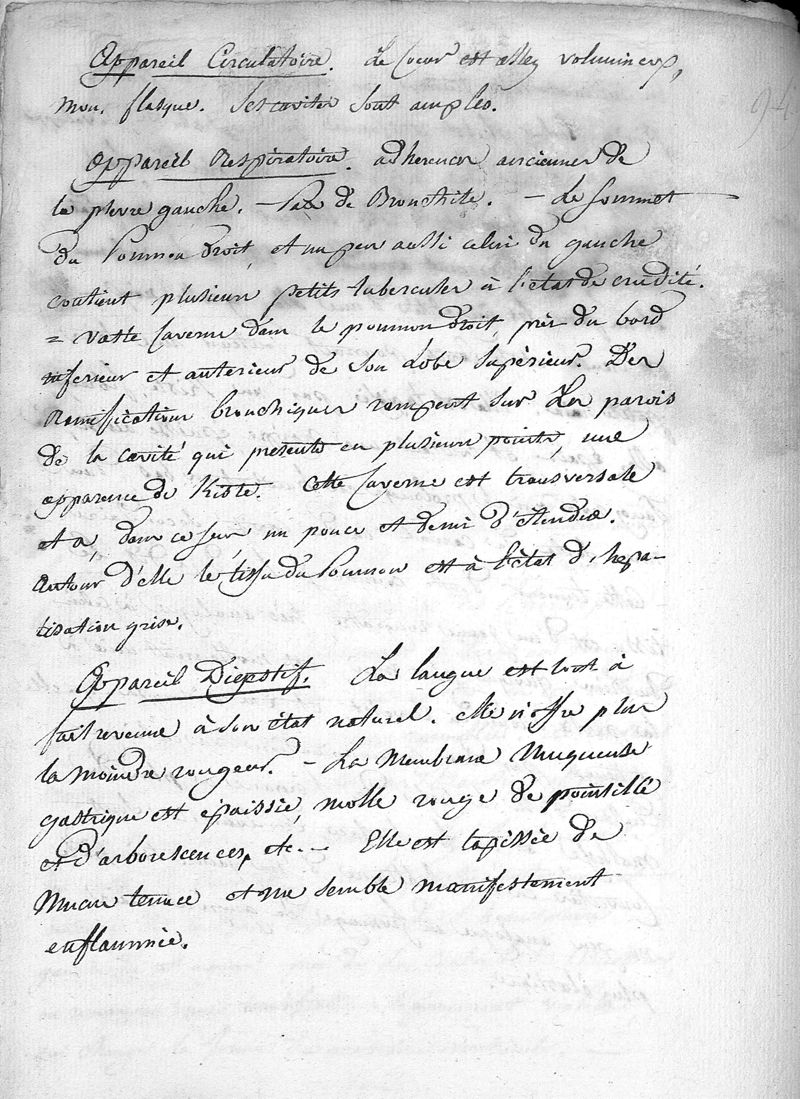 Appareil Circulatoire. Le Coeur est assez volumineux,
mou, flasque. Ses cavités sont amples.
94
Appareil Respiratoire. adhérences anciennes de
la plevre gauche. — Pas de Bronchite. — Le sommet
du Poumon droit, et un peu aussi celui du gauche
contient plusieurs petits tubercules à l'état de crudité.
= Vaste Caverne dans le poumon droit, près du bord
inferieur et anterieur de son Lobe Supérieur. Des
Ramifications bronchiques rampent sur les parois
de la cavité qui présente en plusieurs points, une
apparence de Kiste. Cette Caverne est transversale
et a, dans ce sens un pouce et demi d'étendue.
Autour d'elle le tissu du Poumon est à l'état d'hépa-
tisation grise.
Appareil Digestif. La langue est tout à
fait revenue à son état naturel. elle n'offre plus
la moindre rougeur. — La Membrane Muqueuse
gastrique est épaissie, molle rouge de pointillé
et d'arborescences, etc — Elle est tapissée de
Mucus tenace et me semble manifestement
enflammée.